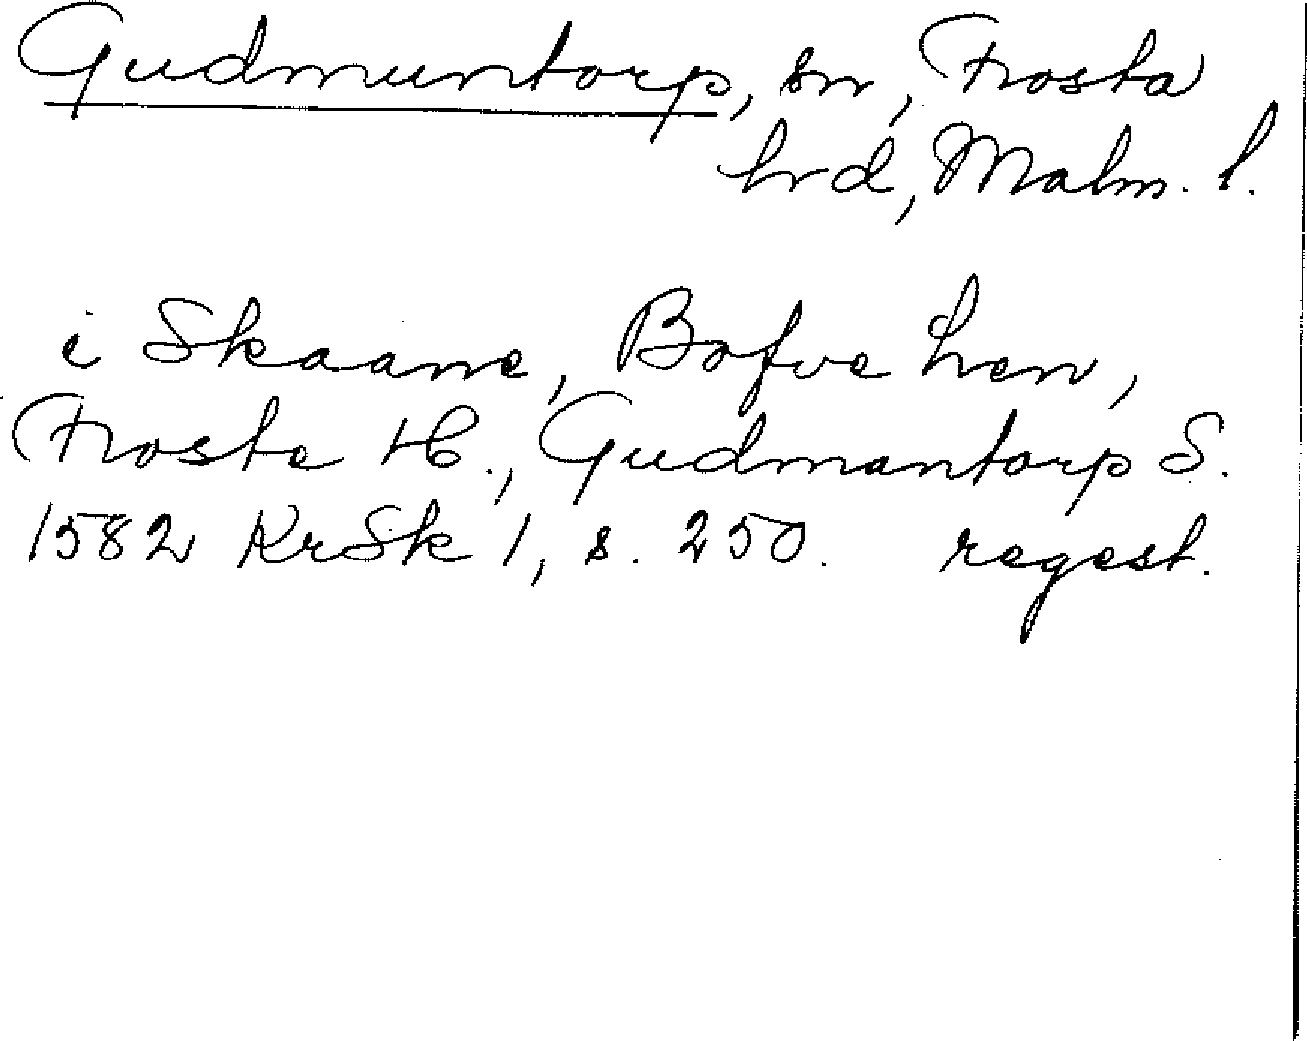 Gudmuntorp, sn, Frosta
hrd, Malm. l.
i Skaane, Bofve Len,
Froste H., Gudmantorp S.
1582 KrSk 1, s. 250. regest.